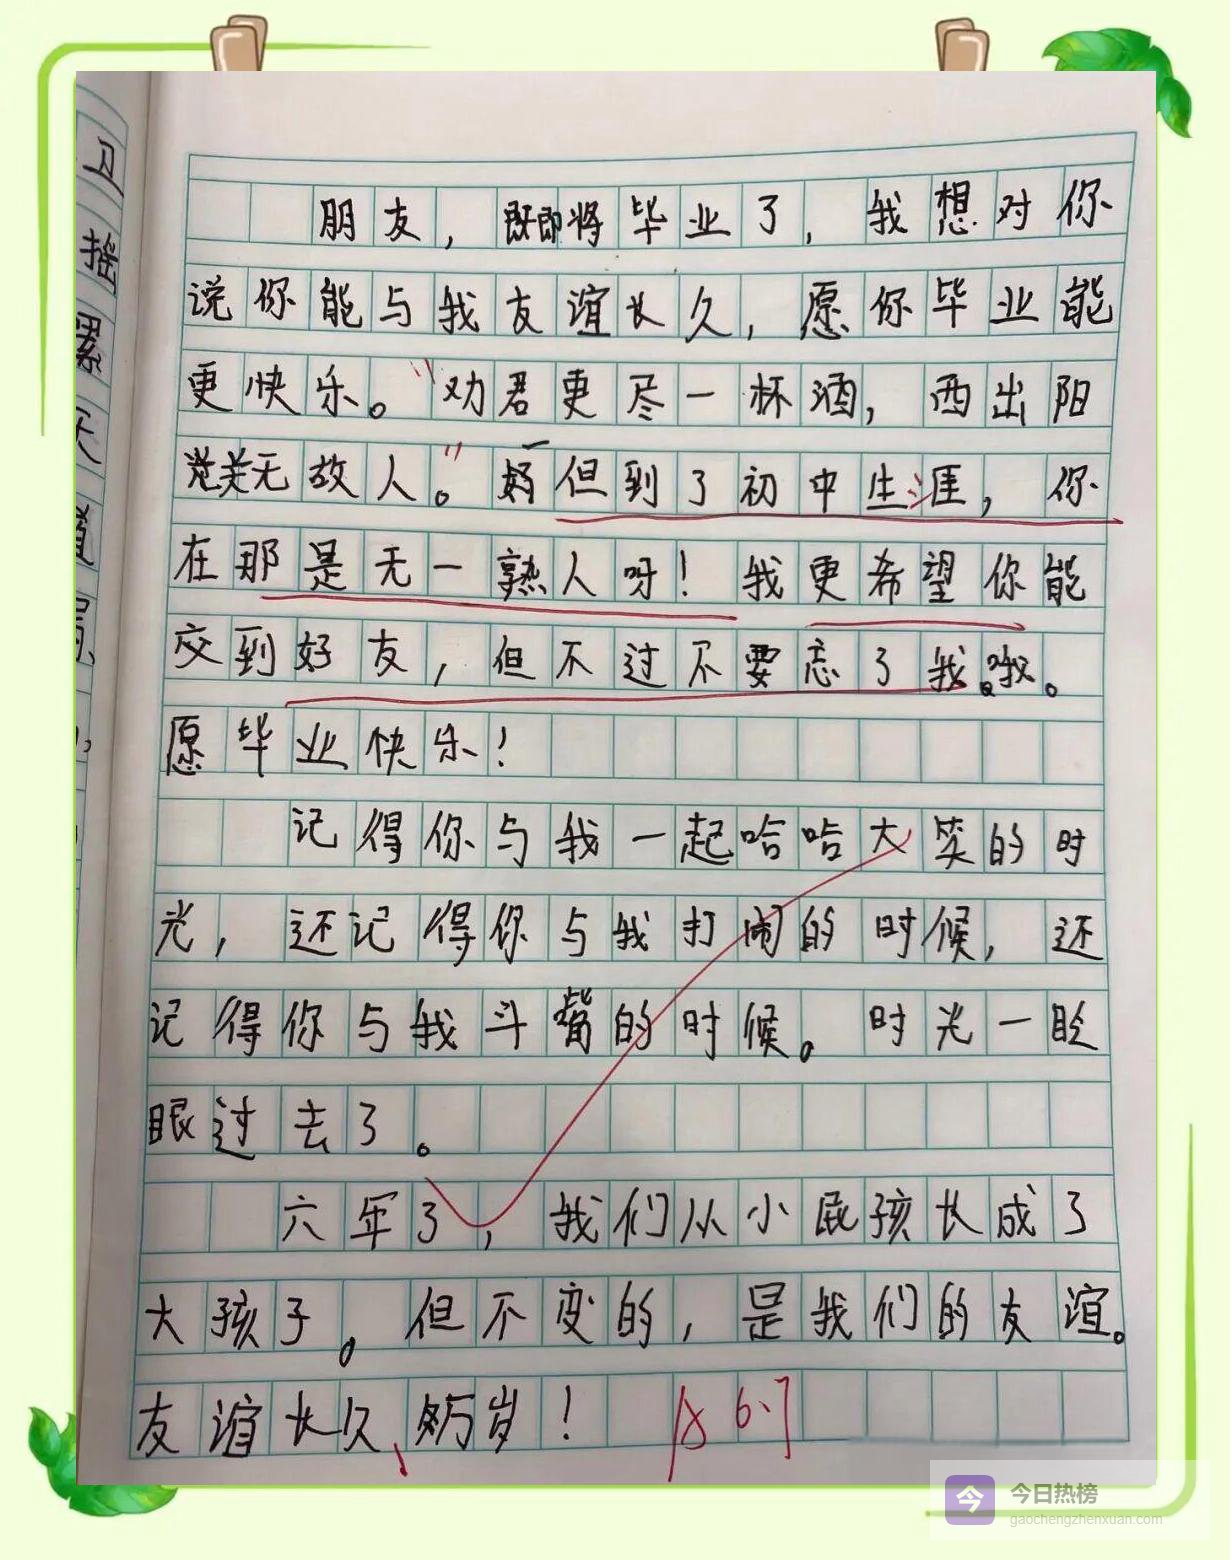 朋友，即将毕业了，我想对你
说你能与我友谊长久，愿你毕业能
更快乐。“劝君更尽一杯酒，西出阳
关无故人。”但到了初中生涯，你
在那是无一熟人呀！我更希望你能
交到好友，但不过不要忘了我。
愿毕业快乐！
记得你与我一起哈哈大笑的时
光，还记得你与我打闹的时候，还
记得你与我斗嘴的时候。时光一眨
眼过去了。
六年了，我们从小屁孩长成了
大孩子。但不变的，是我们的友谊。
友谊长久、万岁！
卫
摇
累
天
道
今 今日热榜
gaochengzhenxuan.com